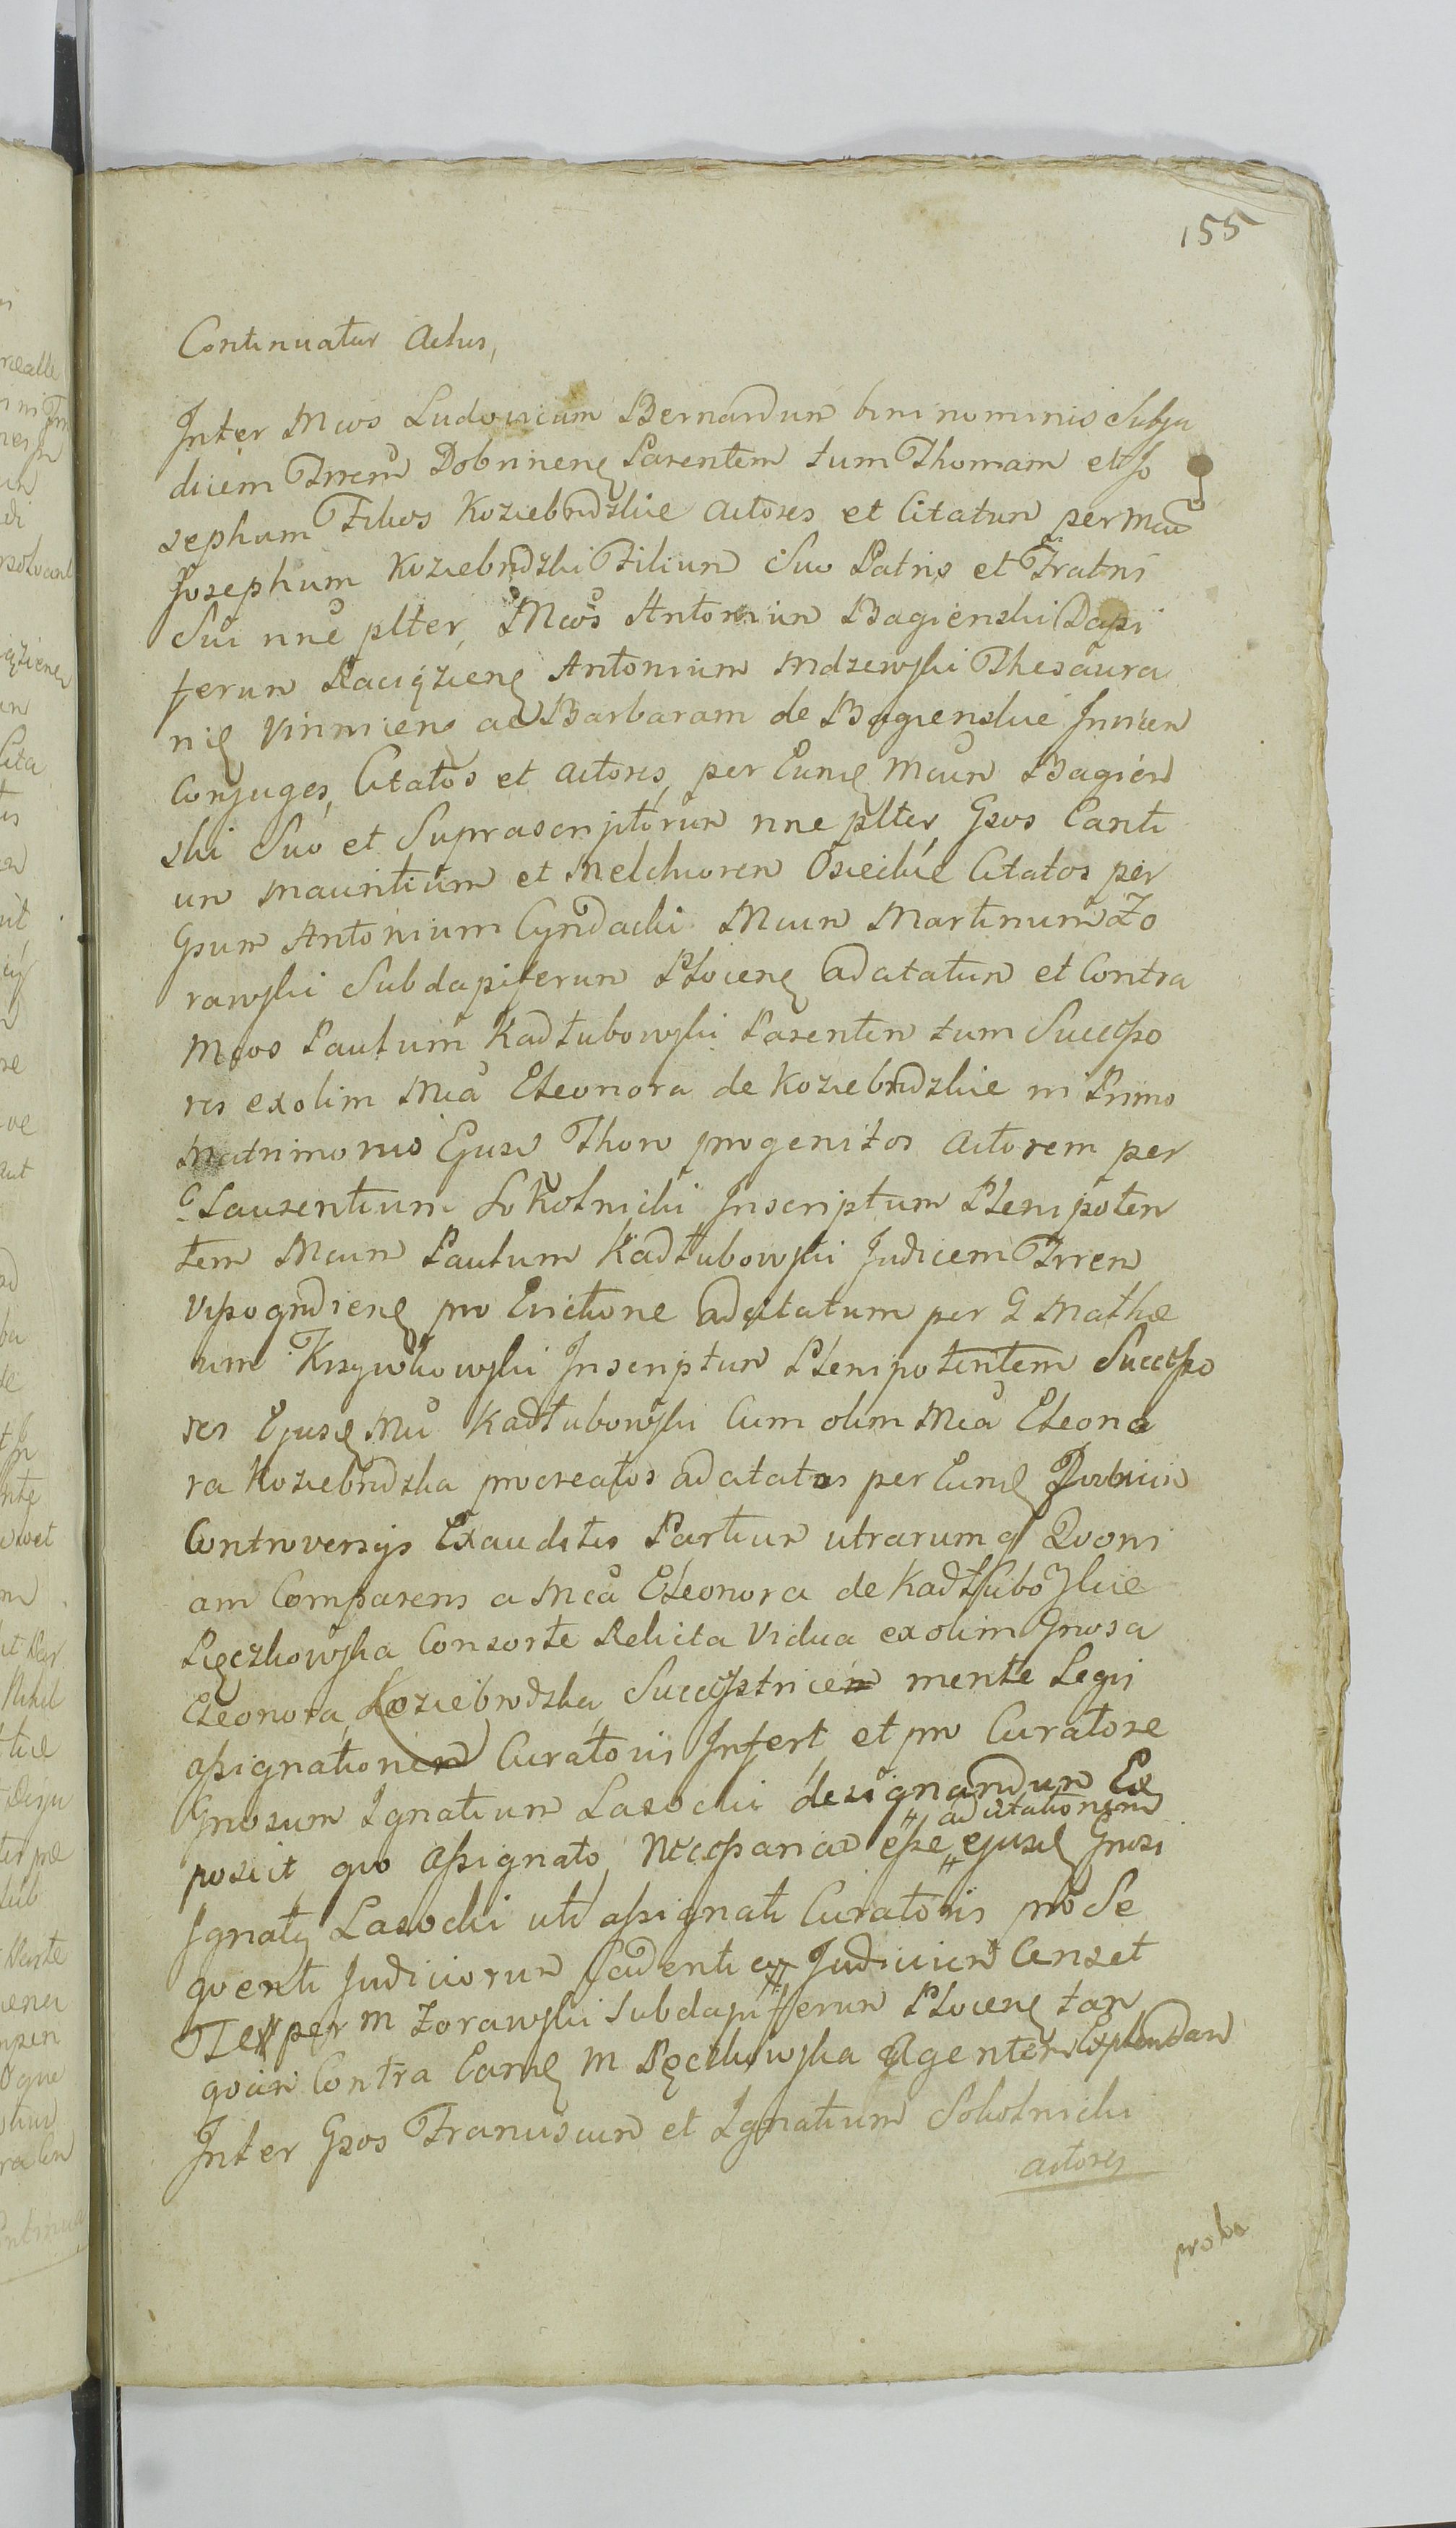 155
Continuatur Actus,
Inter Mcos Ludovicum Bernardum bini nominis Subju
dicem Trrem Dobrinens Parentem tum Thomam et Jo
sephum Filios Koziebrodzkie Actores et Citatum per Mcum
Josephum Koziebrodzki Filium Suo Patris et Fratris
Sui nne plter, Mcos Antonium Bagienski Dapi
ferum Raciąziens Antonium Mdzewski Thesaura
ris Vinnicens ac Barbaram de Bagienskie Invicem
Conjuges, Citatos et Actores, per Eund Mcum Bagien
ski Suo et Suprascriptorum nne plter Gsos Canti
um Mauritium et Melchiorem Osieckie Citatos per
Gsum Antonium Cyndacki Mcum Martinum Zo
rawski Subdapiferum Plocens adcitatum et Contra
Mcos Paulum Kadłubowski Parentem tum Successo
res ex olim Mca Eleonora de Koziebrodzkie in Primo
Matrimonio Ejusd Thoro progenitos Actorem per
G Laurentium Sokolnicki Inscriptum Plenipoten
tem Mcum Paulum Kadłubowski Judicem Trrem
Vyszogrodiens pro Evictione adcitatum per G Mathe
um Krzywkowski Inscriptum Plenipotentem Successo
res Ejusd Mci Kadłubowski Cum olim Mca Eleono
ra Koziebrodzka procreatos adcitatos per Eund Judicium
Controversys Exauditis Partium utrarumq Quoni
am Comparens a Mca Eleonora de Kadłubowskie
Pęczkowska Consorte Relicta Vidua ex olim Gnosa
Eleonora Koziebrodzka Successtrice mente Legis
assignationem Curatoris Infert et pro Curatore
Gnosum Ignatium Lasocki designandum Ex
posuit quo Assignato Necessariae esse " adcitationem " ejusd Gnosi
Ignaty Lasocki uti assignati Curatoris pro Se
quenti Judiciorum Cadentia Judicium Censet
Te per M Zorawski Subdapiferum Plocens tan
quam Contra Eand M Pęczkowska Agentem Explendam
Inter Gsos Franciscum et Ignatium Sokolnicki
actores
proba